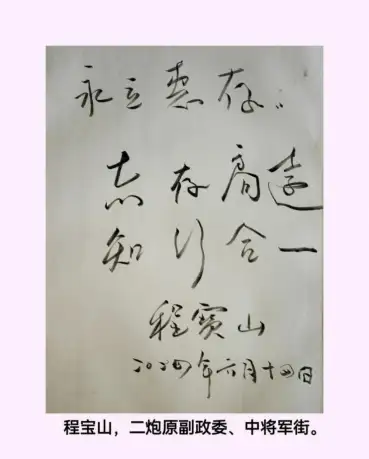 永立惠存：
志存高远
知行合一
程寶山
2024年六月十四日
程宝山，二炮原副政委、中将军街。